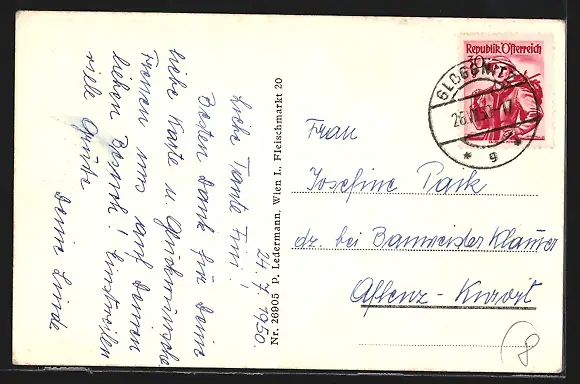 24.7.1950.
Liebe Tante Fini!
Besten Dank für Deine
liebe Karte u. Glückwünsche
Freuen uns auf Deinen
lieben Besuch! Einstweilen
viele Grüße
Deine Linde
Nr. 26905 P. Ledermann, Wien I., Fleischmarkt 20
Republik Österreich
30
GLOGGNITZ
g
Frau
Josefine Park
dz. bei Baumeister Klauer
Aflenz - Kurort
8